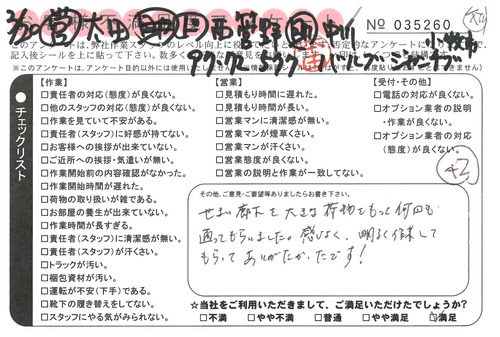 No 035260
このアンケートは、弊社作業スタッフのレベル向上に役
※このアンケートは、アンケート目的以外には使用いたしません。
チェックリスト
【作業】
□責任者の対応(態度)が良くない。
□他のスタッフの対応(態度)が良くない。
□作業を見ていて不安がある。
□責任者(スタッフ)に好感が持てない。
□お客様への挨拶が出来ていない。
□ご近所への挨拶・気遣いが無い。
□作業開始前の内容確認がなかった。
□作業開始時間が遅れた。
□荷物の取り扱いが雑である。
□お部屋の養生が出来ていない。
□作業時間が長すぎる。
□責任者(スタッフ)に清潔感が無い。
□責任者(スタッフ)が汗くさい。
□トラックが汚い。
□梱包資材が汚い。
□運転が不安(下手)である。
□靴下の履き替えをしてない。
□スタッフにやる気がみられない。
【営業】
□見積もり時間に遅れた。
□見積もり時間が長い。
□営業マンに清潔感が無い。
□営業マンが煙草くさい。
□営業マンが汗くさい。
□営業態度が良くない。
□営業の説明と作業が一致してない。
【受付・その他】
□電話の対応が良くない。
□オプション業者の説明
・作業が良くない。
□オプション業者の対応
(態度)が良くない。
42
その他、ご意見・ご要望等ありましたらお書き下さい。
せまい廊下を大きな荷物をもって何回も
通ってもらいました。感じよく、明るく作業して
もらってありがたかったです!
☆当社をご利用いただきまして、ご満足いただけたでしょうか?
□不満 □やや不満 □普通 □やや満足 □満足